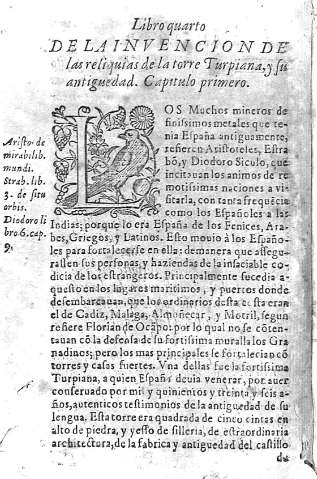 Libro quarto
DE LA INVENCION DE
las reliquias de la torre Turpiana, y su
antiguedad. Capitulo primero.
Aristo. de
mirabilib.
mundi.
Strab. lib.
3. de situ
orbis.
Diodoro li
bro 6. cap.
9.
LOS Muchos mineros de
finissimos metales que te-
nia España antiguamente,
refieren Aristoteles, Estra
bõ, y Diodoro Siculo, que
incitauan los animos de re
motissimas naciones a vi-
sitarla, con tanta frequẽcia
como los Españoles a las
Indias; porque lo era España de los Fenices, Ara-
bes, Griegos, y Latinos. Esto mouio à los Españo-
les para fortalecerse en ella: demanera que assegu-
rassen sus personas, y haziendas de la insaciable co-
dicia de los estrangeros. Principalmente sucedia a-
questo en los lugares maritimos, y puertos donde
desembarcauan, que los ordinarios desta costa eran
el de Cadiz, Malaga, Almuñecar, y Motril, segun
refiere Florian de Ocãpo: por lo qual no se cõten-
tauan cõ la defensa de su fortissima muralla los Gra
nadinos; pero los mas principales se fortalecian cõ
torres y casas fuertes. Vna dellas fue la fortissima
Turpiana, a quien España deuia venerar, por auer
conseruado por mil y quinientos y treinta y seis a-
ños, autenticos testimonios de la antiguedad de su
lengua. Esta torre era quadrada de cinco cintas en
alto de piedra, y yesso de silleria, de estraordinaria
architectura, de la fabrica y antiguedad del castillo